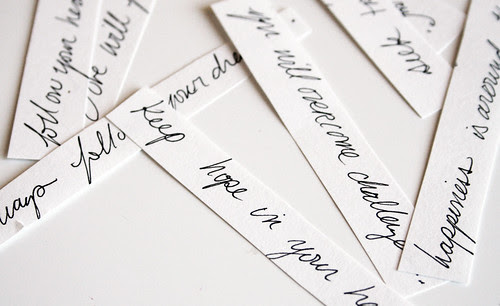 follow your hea
ve will
always follo your dre
Keep hope in your he
will overcome challenge
happiness is around